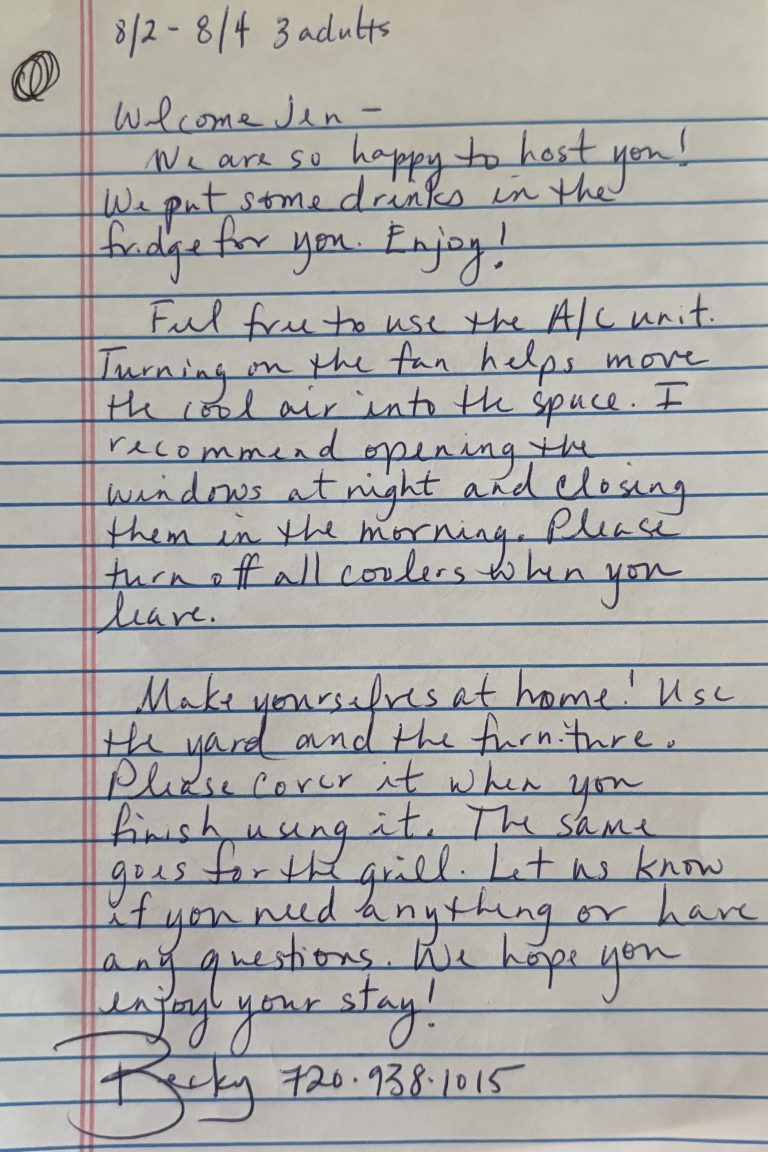 8/2 - 8/4 3 adults
Welcome Jen -
We are so happy to host you!
We put some drinks in the
fridge for you. Enjoy!
Feel free to use the A/C unit.
Turning on the fan helps move
the cool air into the space. I
recommend opening the
windows at night and closing
them in the morning. Please
turn off all coolers when you
leave.
Make yourselves at home! Use
the yard and the furniture.
Please cover it when you
finish using it. The same
goes for the grill. Let us know
if you need anything or have
any questions. We hope you
enjoy your stay!
Becky 720.938.1015